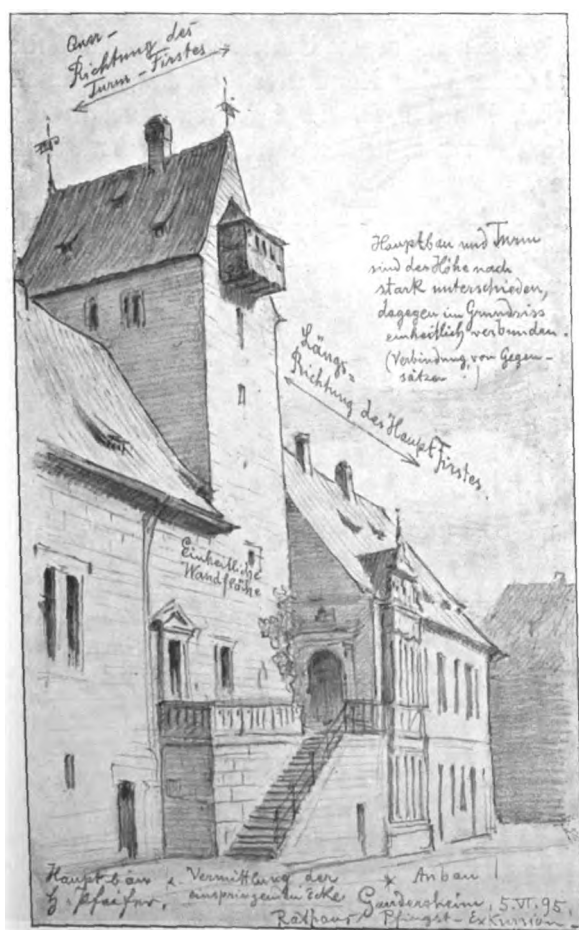 Quer-
Richtung des
Turm-Firstes
Hauptbau und Turm
sind der Höhe nach
stark unterschieden,
dagegen im Grundriss
einheitlich verbunden.
(Verbindung von Gegen-
sätzen!)
Längs-
Richtung des Haupt Firstes.
Einheitliche
Wandfläche
Hauptbau
Vermittlung der
einspringenden Ecke
Anbau
H. Pfeifer.
Gandersheim, 5. VI. 95.
Rathaus Pfingst-Exkursion